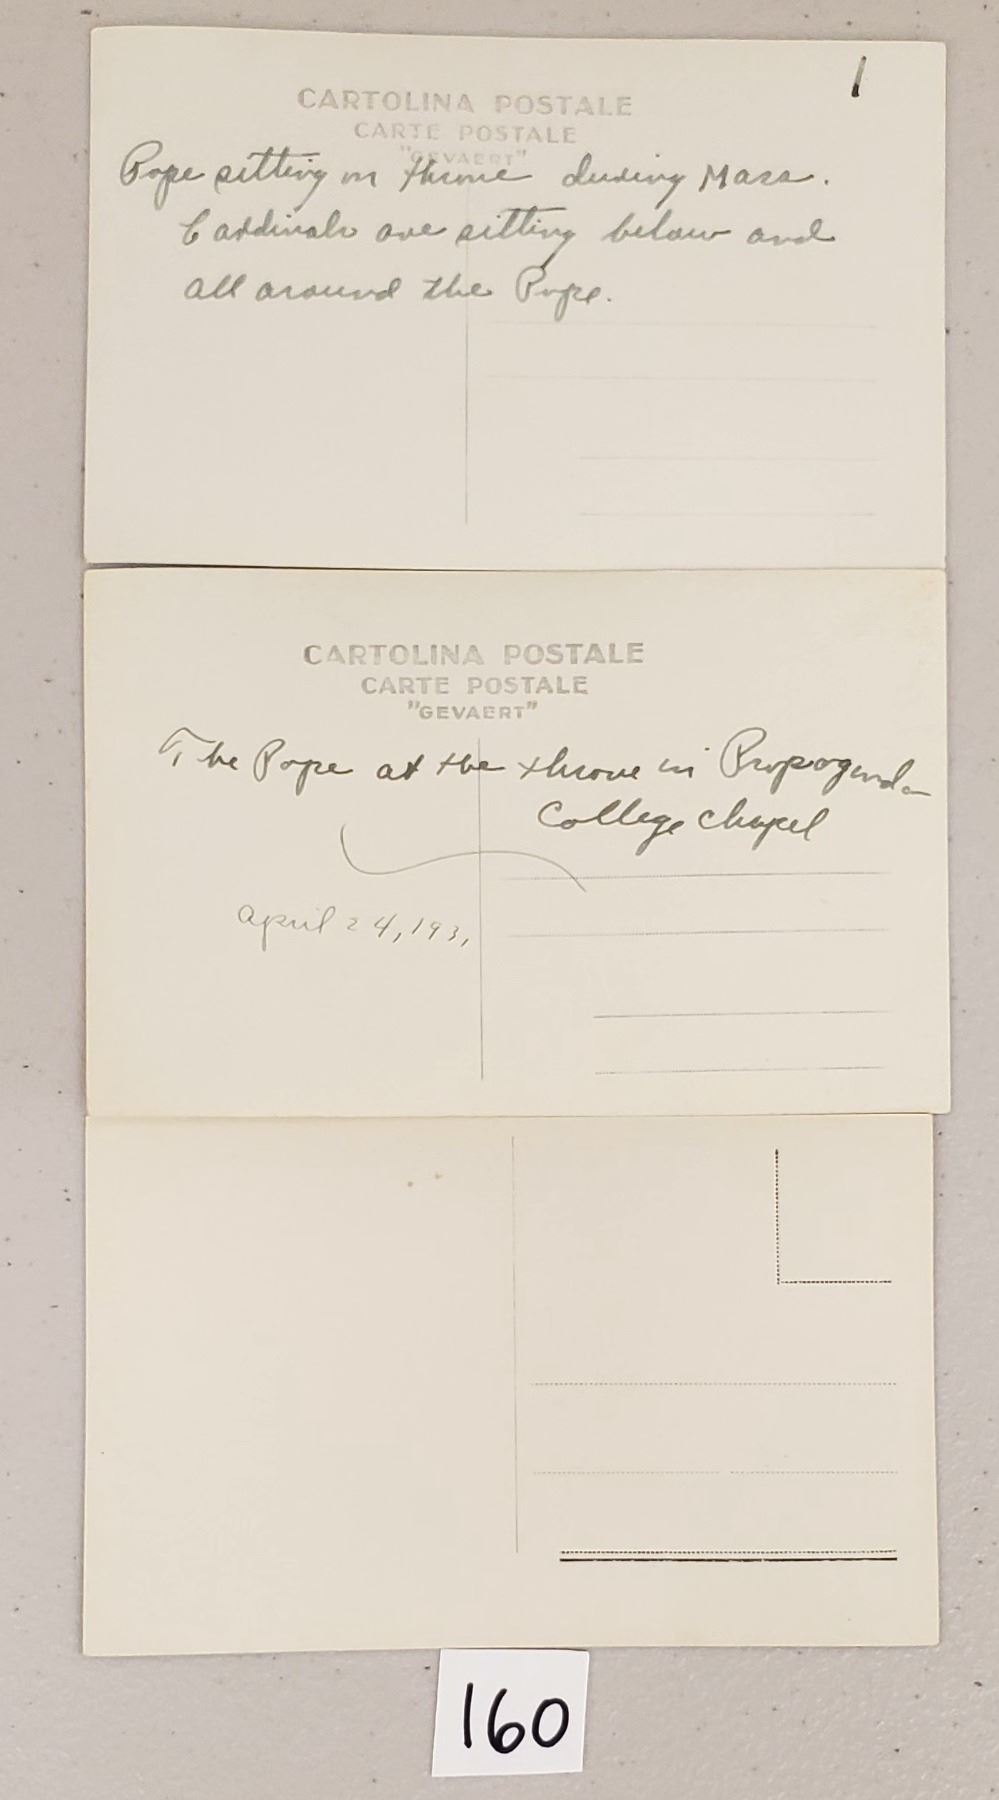 1
CARTOLINA POSTALE
CARTE POSTALE
"GEVAERT"
Pope sitting on throne during Mass.
Cardinals are sitting below and
all around the Pope.
CARTOLINA POSTALE
CARTE POSTALE
"GEVAERT"
The Pope at the throne in Propaganda
College Chapel
April 24, 1931
160